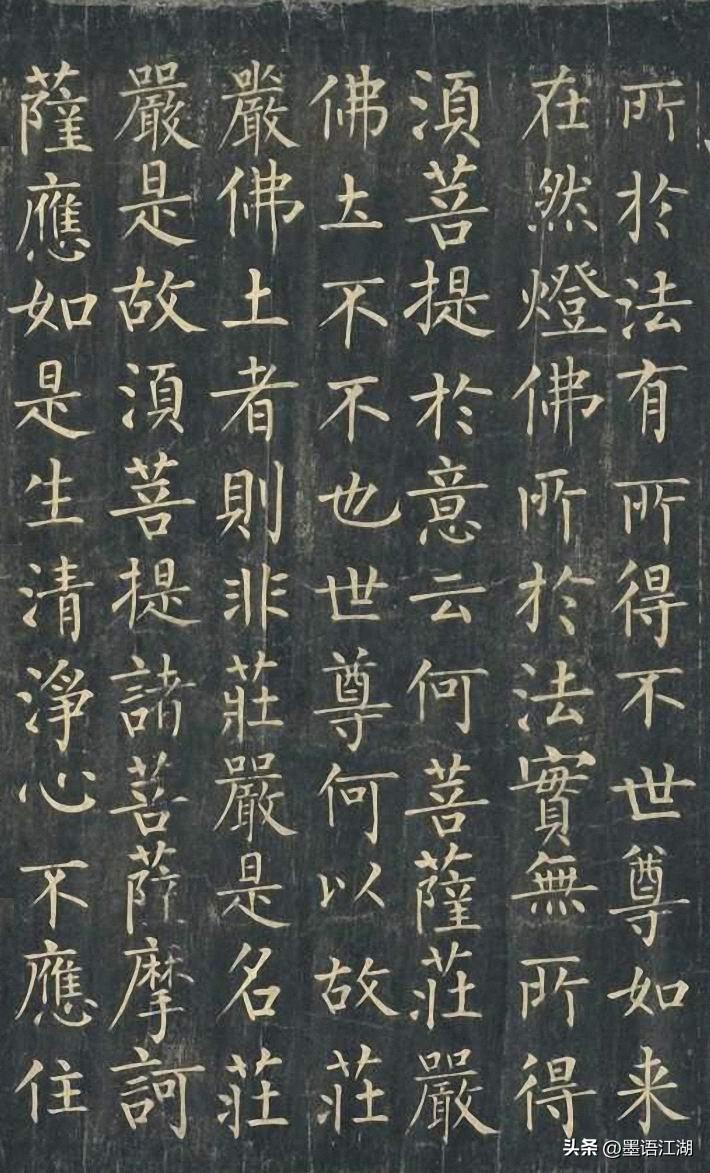 所於法有所得不世尊如来
在然燈佛所於法實無所得
湏菩提於意云何菩薩莊嚴
佛土不不也世尊何以故莊
嚴佛土者則非莊嚴是名莊
嚴是故湏菩提諸菩薩摩訶
薩應如是生清淨心不應住
头条 @墨语江湖